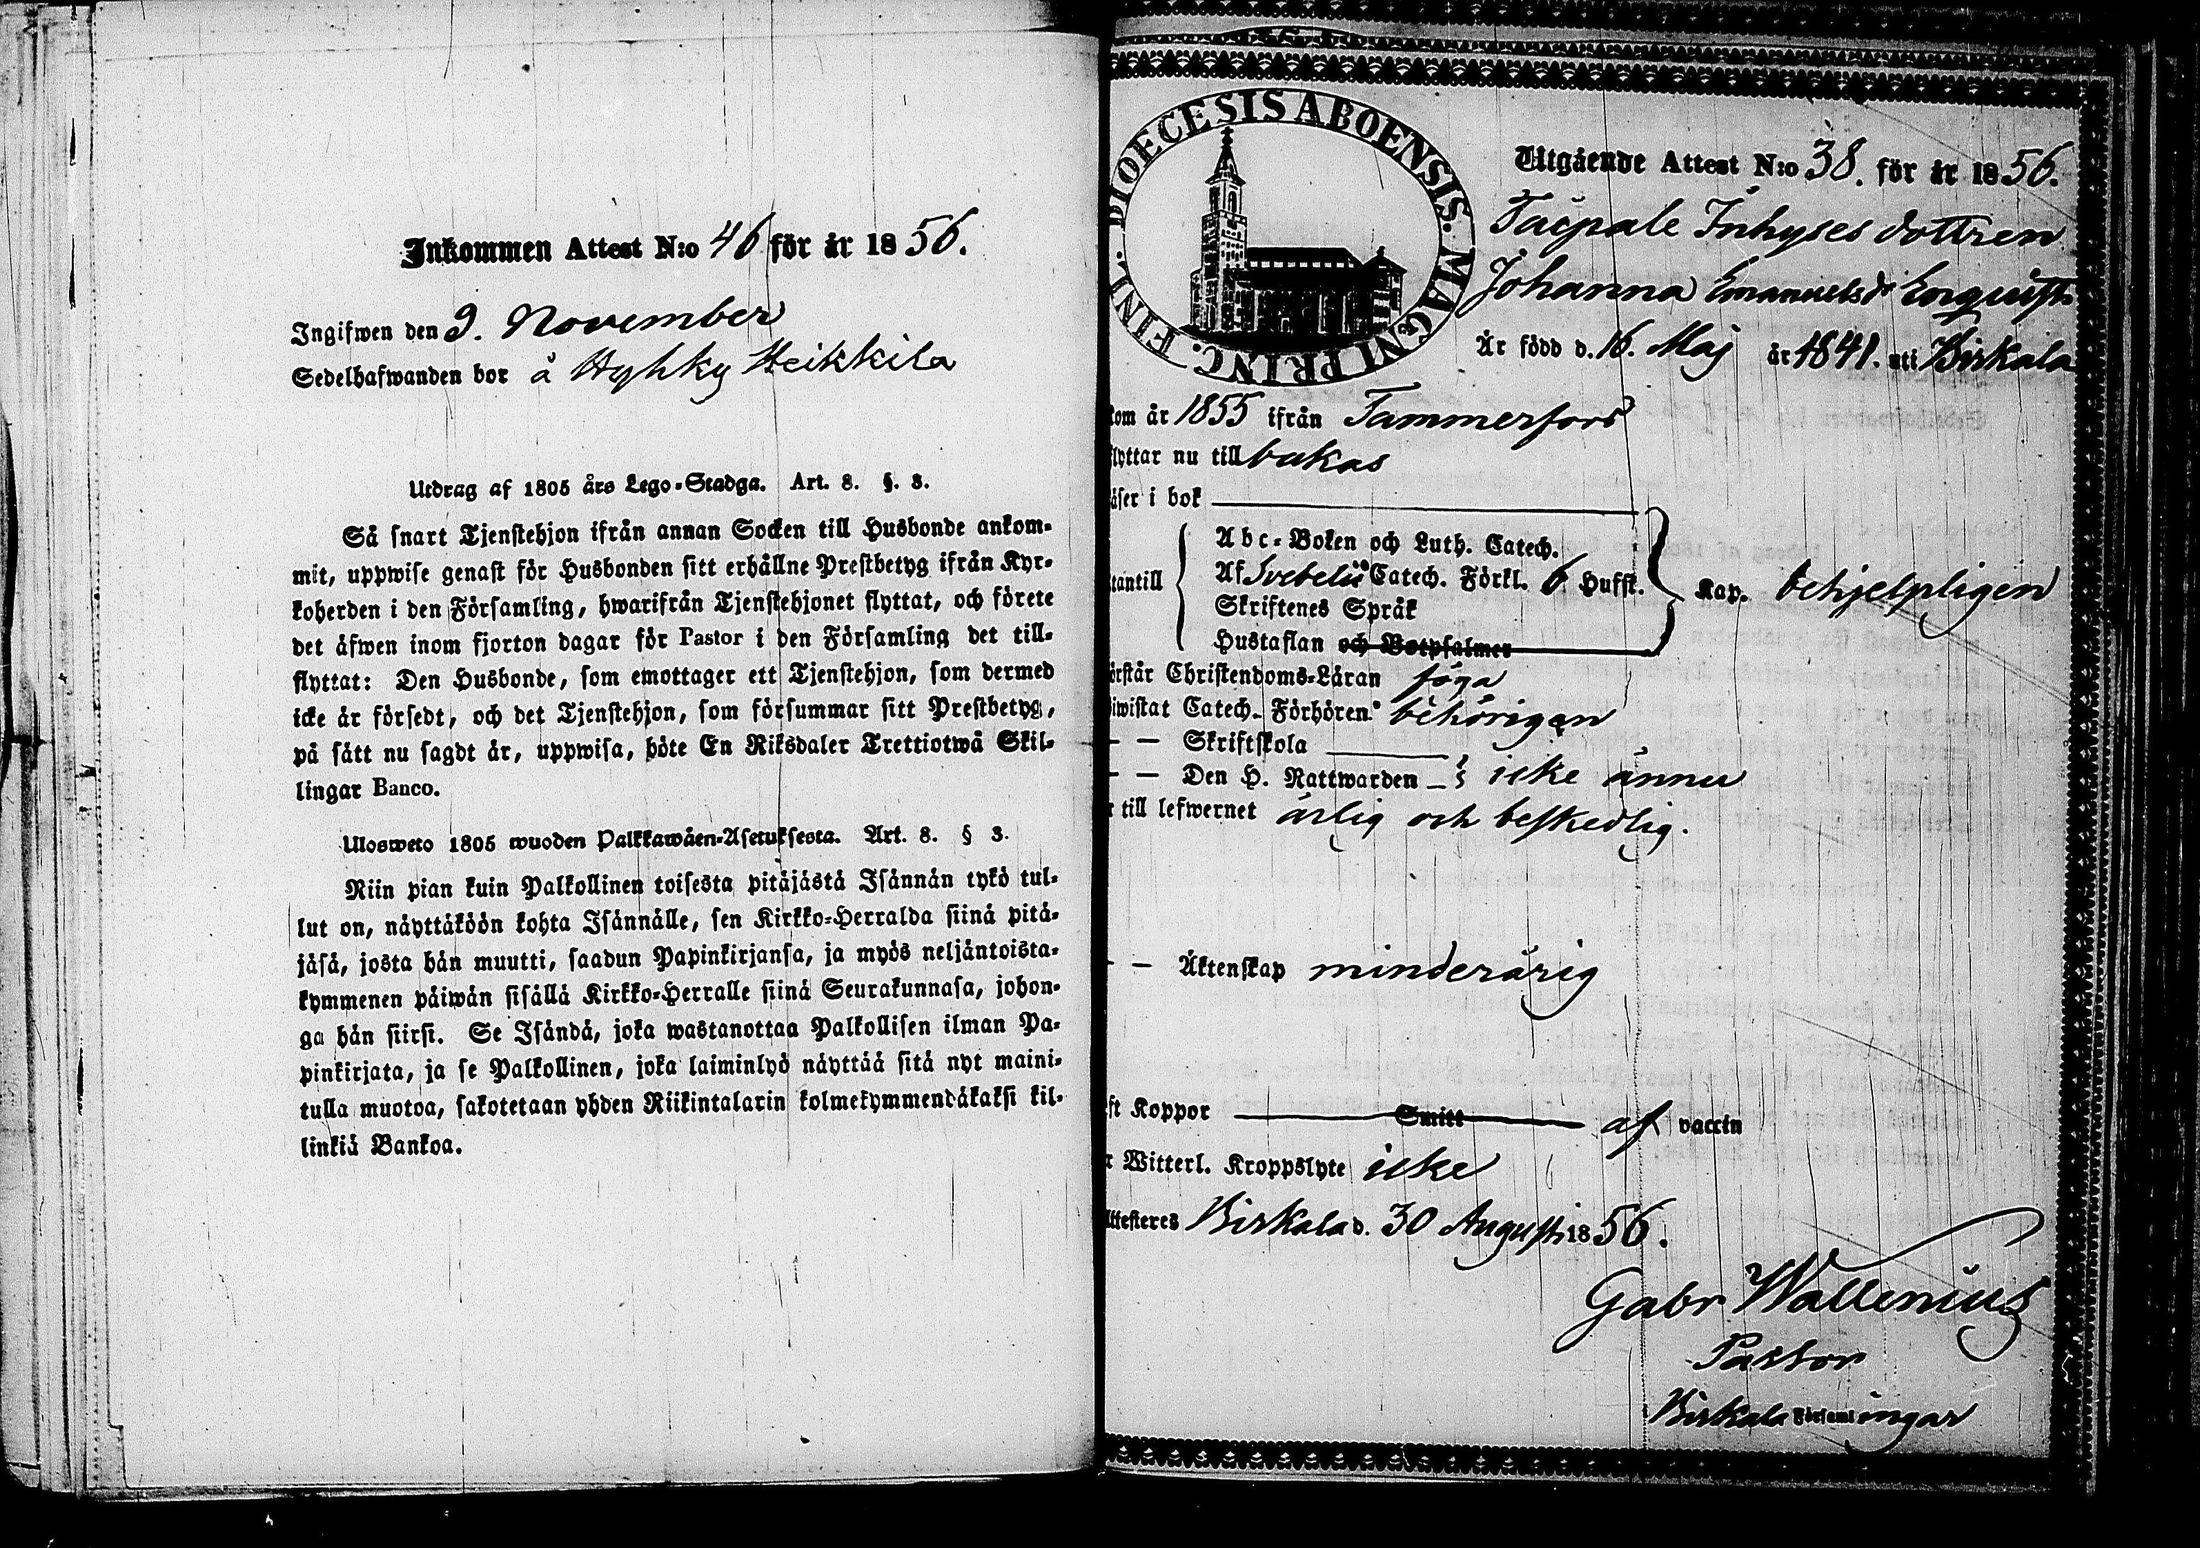 Inkommen Attest N:o 46 för år 1856.
Ingifwen den 9. November
Sedelhafwanden bor å Hyhky Heikkila
Utdrag af 1805 års Lego-Stadga. Art. 8. §. 3.
Så snart Tjenstehjon ifrån annan Socken till Husbonde ankom-
mit, uppwise genast för Husbonden sitt erhållne Prestbetyg ifrån Kyr-
koherden i den Församling, hwarifrån Tjenstehjonet flyttat, och förete
det äfwen inom fjorton dagar för Pastor i den Församling det till-
flyttat: Den Husbonde, som emottager ett Tjenstehjon, som dermed
icke är försedt, och det Tjenstehjon, som försummar sitt Prestbetyg,
på sätt nu sagdt är, uppwisa, böte En Riksdaler Trettiotwå Skil-
lingar Banco.
Ulosweto 1805 wuoden Palkkawäen-Asetuksesta. Art. 8. § 3.
Niin pian kuin Palkollinen toisesta pitäjästä Isännän tykö tul-
lut on, näyttäköön kohta Isännälle, sen Kirkko-Herralda siinä pitä-
jäsä, josta hän muutti, saadun Papinkirjansa, ja myös neljäntoista-
kymmenen päiwän sisällä Kirkko-Herralle siinä Seurakunnasa, johon-
ga hän siirsi. Se Isändä, joka wastanottaa Palkollisen ilman Pa-
pinkirjata, ja se Palkollinen, joka laiminlyö näyttää sitä nyt maini-
tulla muotoa, sakotetaan yhden Riikintalarin kolmekymmendäkaksi kil-
linkiä Bankoa.
DIOECESIS ABOENSIS. MAGNI PRINC. FINL.
Utgående Attest N:o 38. för år 1856.
Inhyses dottren
Johanna Emanuelsdr Enquist
Är född d. 16. Maj år 1841. uti Birkala
kom år 1855 ifrån Tammerfors
flyttar nu till bakas
läser i bok
utantill
Abc-Boken och Luth. Catech.
Af Svebelii Catech. Förkl. 6 Hufst.
Skriftenes Språk
Hustaflan och Botpsalmer
Kap. behjelpligen
förstår Christendoms-Läran föga
biwistat Catech. Förhören behörigen
— — Skriftskola
— — Den H. Nattwarden — icke ännu
r till lefwernet ärlig och beskedlig.
— — Äktenskap minderårig
ft Koppor Smitt af vaccin
r Witterl. Kroppslyte icke
Attesteres Birkala d. 30 Augusti 1856.
Gabr Wallenius
Pastor
Birkala Församlingar